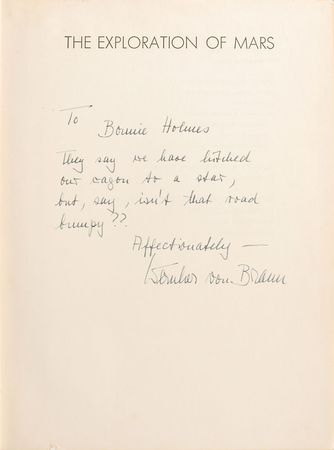 THE EXPLORATION OF MARS
To
Bonnie Holmes
They say we have hitched
our wagon to a star,
but, say, isn't that road
bumpy??
Affectionately —
Wernher von Braun